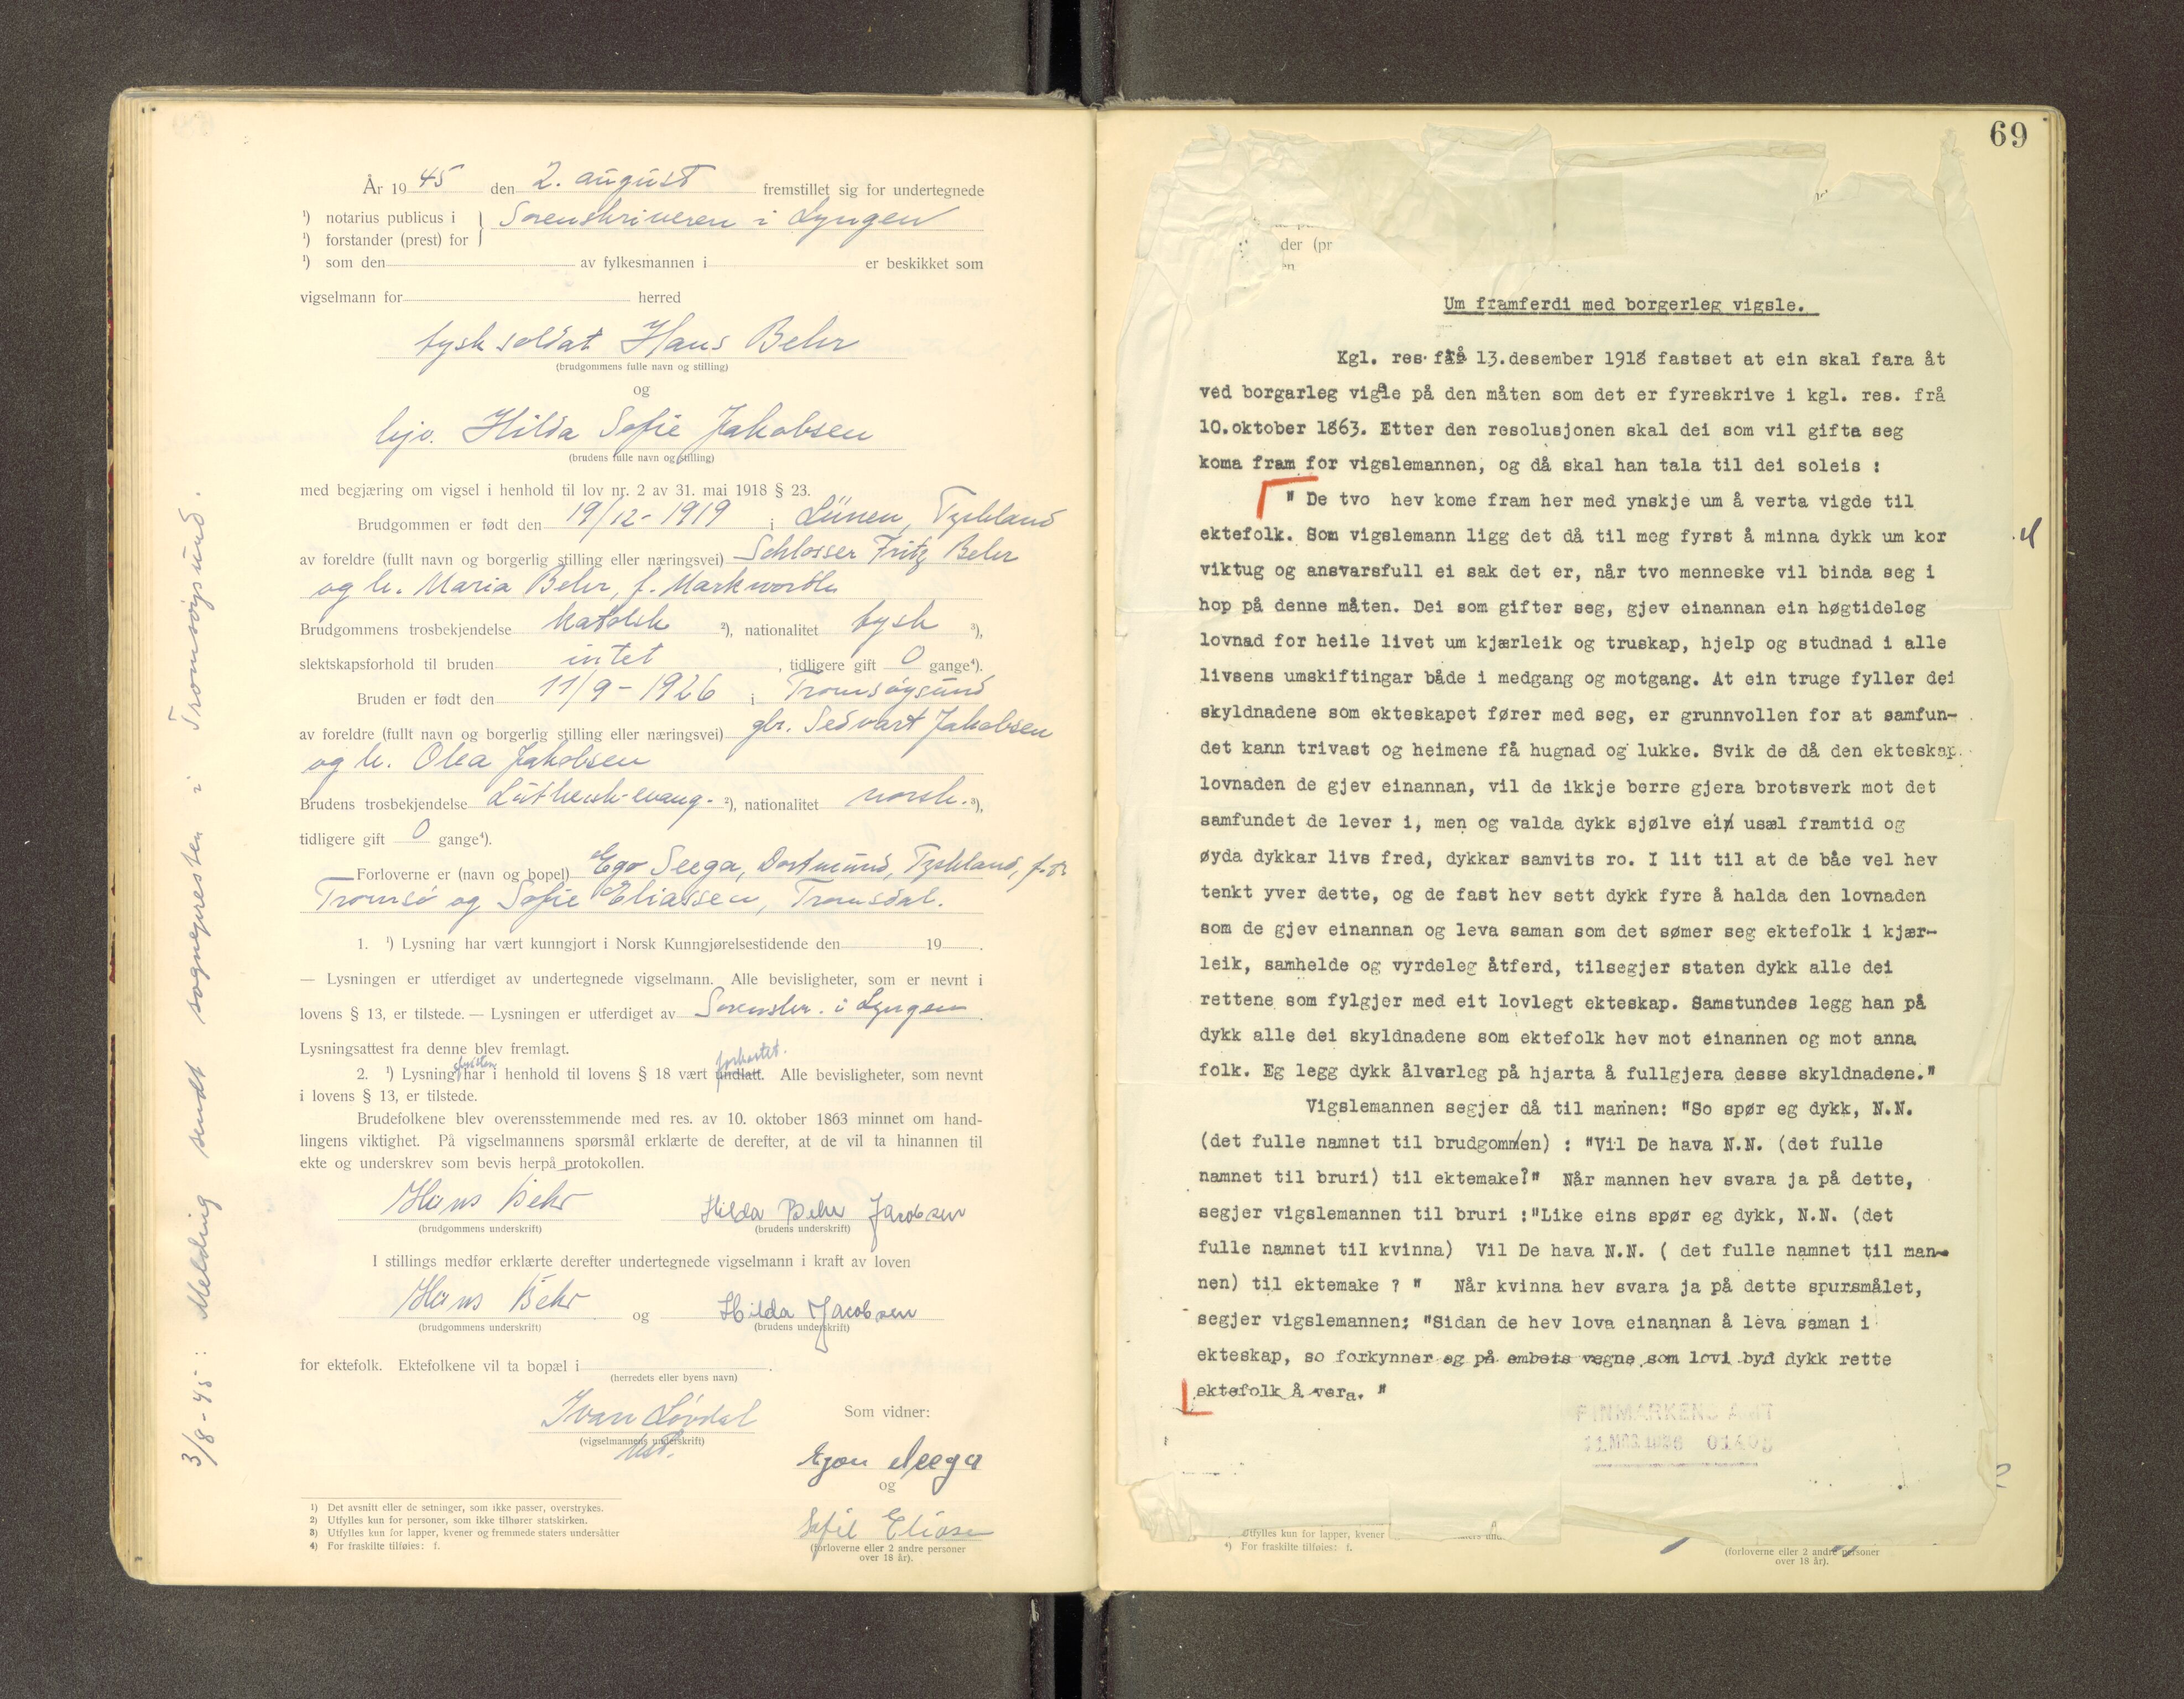 År 1945 den 2. august fremstillet sig for undertegnede
¹) notarius publicus i } Sorenskriveren i Lyngen
¹) forstander (prest) for
¹) som den av fylkesmannen i er beskikket som
vigselmann for herred
tysk soldat Hans Behr
(brudgommens fulle navn og stilling)
og
hjv. Hilda Sofie Jakobsen
(brudens fulle navn og stilling)
med begjæring om vigsel i henhold til lov nr. 2 av 31. mai 1918 § 23.
Brudgommen er født den 19/12-1919 i Lünen, Tyskland
av foreldre (fullt navn og borgerlig stilling eller næringsvei) Schlosser Fritz Behr
og h. Maria Behr, f. Markworth
Brudgommens trosbekjendelse katolsk ²), nationalitet tysk ³),
slektskapsforhold til bruden intet, tidligere gift 0 gange⁴).
Bruden er født den 11/9-1926 i Tromsøysund
av foreldre (fullt navn og borgerlig stilling eller næringsvei) gbr. Sedvart Jakobsen
og h. Olea Jakobsen
Brudens trosbekjendelse Luthersk-evang- ²), nationalitet norsk. ³),
tidligere gift 0 gange⁴).
Forloverne er (navn og bopel) Ego Seega, Dortmund, Tyskland, f.t.
Tromsø og Sofie Eliassen, Tromsdal.
1. ¹) Lysning har vært kunngjort i Norsk Kunngjørelsestidende den 19 .
— Lysningen er utferdiget av undertegnede vigselmann. Alle bevisligheter, som er nevnt i
lovens § 13, er tilstede. — Lysningen er utferdiget av Sorenskr. i Lyngen.
Lysningsattest fra denne blev fremlagt.
2. ¹) Lysningsfristen har i henhold til lovens § 18 vært undlatt forkortet. Alle bevisligheter, som nevnt
i lovens § 13, er tilstede.
Brudefolkene blev overensstemmende med res. av 10. oktober 1863 minnet om hand-
lingens viktighet. På vigselmannens spørsmål erklærte de derefter, at de vil ta hinannen til
ekte og underskrev som bevis herpå protokollen.
Hans Behr Hilda Behr Jacobsen
(brudgommens underskrift) (brudens underskrift)
I stillings medfør erklærte derefter undertegnede vigselmann i kraft av loven
Hans Behr og Hilda Jacobsen
(brudgommens underskrift) (brudens underskrift)
for ektefolk. Ektefolkene vil ta bopæl i .
(herredets eller byens navn)
Ivan Løvdal
(vigselmannens underskrift)
Som vidner:
Egon Seega
og
Sofie Eliasen
(forloverne eller 2 andre personer
over 18 år).
1) Det avsnitt eller de setninger, som ikke passer, overstrykes.
2) Utfylles kun for personer, som ikke tilhører statskirken.
3) Utfylles kun for lapper, kvener og fremmede staters undersåtter
4) For fraskilte tilføies: f.
3/8-45: Melding sendt sognepresten i Tromsøysund.
69
der (pr
en
Um framferdi med borgerleg vigsle.
Kgl. res. frå 13.desember 1918 fastset at ein skal fara åt
ved borgarleg vigsle på den måten som det er fyreskrive i kgl. res. frå
10.oktober 1863. Etter den resolusjonen skal dei som vil gifta seg
koma fram for vigslemannen, og då skal han tala til dei soleis :
" De tvo hev kome fram her med ynskje um å verta vigde til
ektefolk. Som vigslemann ligg det då til meg fyrst å minna dykk um kor
viktug og ansvarsfull ei sak det er, når tvo menneske vil binda seg i
hop på denne måten. Dei som gifter seg, gjev einannan ein høgtideleg
lovnad for heile livet um kjærleik og truskap, hjelp og studnad i alle
livsens umskiftingar både i medgang og motgang. At ein truge fyller dei
skyldnadene som ekteskapet fører med seg, er grunnvollen for at samfun-
det kann trivast og heimene få hugnad og lukke. Svik de då den ekteskap
lovnaden de gjev einannan, vil de ikkje berre gjera brotsverk mot det
samfundet de lever i, men og valda dykk sjølve ein usæl framtid og
øyda dykkar livs fred, dykkar samvits ro. I lit til at de båe vel hev
tenkt yver dette, og de fast hev sett dykk fyre å halda den lovnaden
som de gjev einannan og leva saman som det sømer seg ektefolk i kjær-
leik, samhelde og vyrdeleg åtferd, tilsegjer staten dykk alle dei
rettene som fylgjer med eit lovlegt ekteskap. Samstundes legg han på
dykk alle dei skyldnadene som ektefolk hev mot einannen og mot anna
folk. Eg legg dykk ålvorleg på hjarta å fullgjera desse skyldnadene."
Vigslemannen segjer då til mannen: "So spør eg dykk, N.N.
(det fulle namnet til brudgommen) : "Vil De hava N.N. (det fulle
namnet til bruri) til ektemake?" Når mannen hev svara ja på dette,
segjer vigslemannen til bruri :"Like eins spør eg dykk, N.N. (det
fulle namnet til kvinna) Vil De hava N.N. ( det fulle namnet til man-
nen) til ektemake ? " Når kvinna hev svara ja på dette spursmålet,
segjer vigslemannen: "Sidan de hev lova einannan å leva saman i
ekteskap, so forkynner eg på embets vegne som lovi byd dykk rette
ektefolk å vera. "
FINMARKENS AMT
Utfylles kun for lapper, kvener
⁴) For fraskilte tilføies: f.
(forloverne eller 2 andre personer
over 18 år).